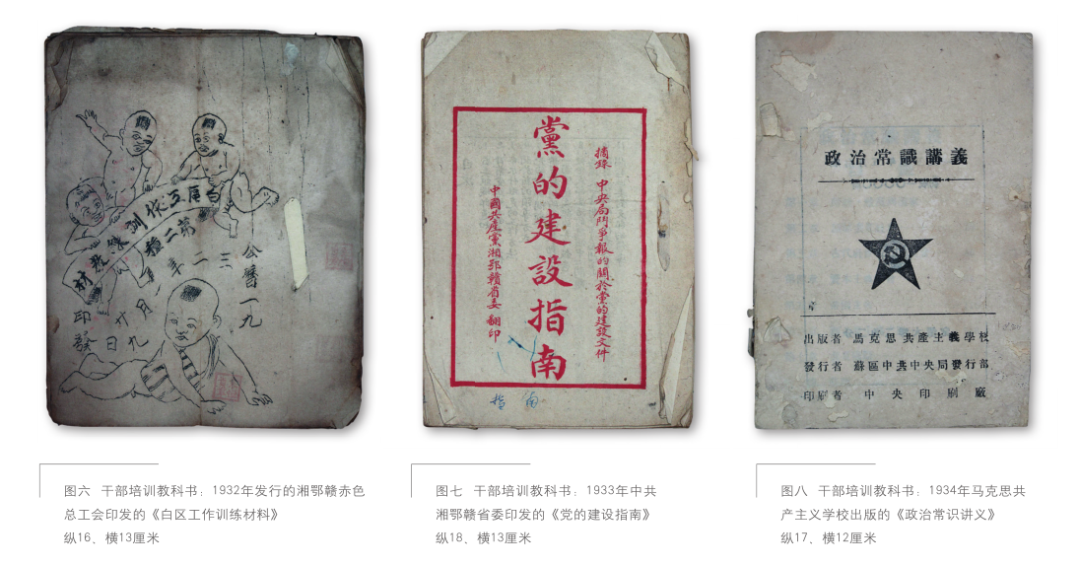 白區工作訓練教材
第二種
公曆一九
三二年
月廿九日
印發
摘錄 中央局鬥爭報的關於黨的建設文件
黨的建設指南
中國共產黨湘鄂贛省委 翻印
指南
政治常識講義
出版者 馬克思共產主義學校
發行者 蘇區中共中央局發行部
印刷者 中央印刷廠
图六 干部培训教科书：1932年发行的湘鄂赣赤色
总工会印发的《白区工作训练材料》
纵16、横13厘米
图七 干部培训教科书：1933年中共
湘鄂赣省委印发的《党的建设指南》
纵18、横13厘米
图八 干部培训教科书：1934年马克思共
产主义学校出版的《政治常识讲义》
纵17、横12厘米